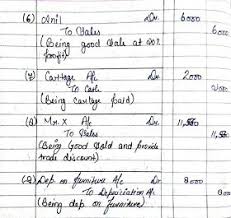 (6) Anil Dr. 6000
To Sales 6000
(Being good Sale at 20%
profit)
Cartage A/c Dr. 2000
To Cash 2000
(Being cartage paid)
(8) Mr. X A/c Dr. 11,520
To Sales 11,520
(Being Good Sold and provide
trade discount)
Dep on furniture A/c Dr. 8000
To Depreciation A/c 8000
(Being dep on furniture)